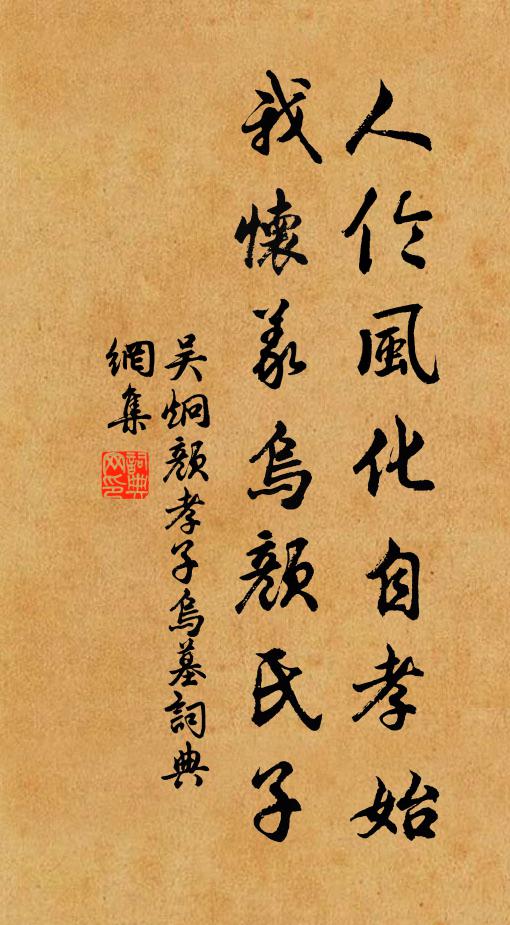 人伦風化自孝始
我懷義烏顏氏子
吴炯顏孝子烏墓詞典
網集
詞典
网印